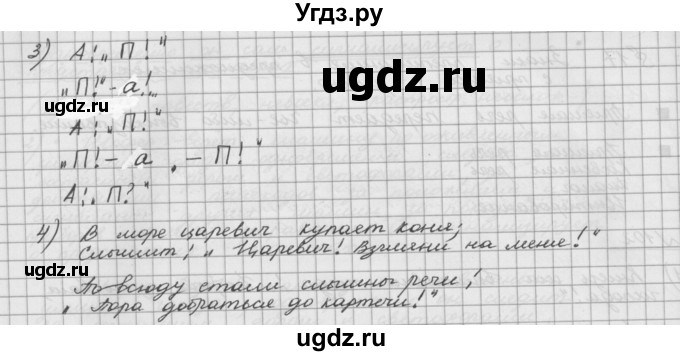 Угдз.ру
3) А: „П!"
„П!" - а!„
А: „П!"
„П! - а, - П!"
А: „П?"
4) В море царевич купает коня;
Слышит: „Царевич! Взгляни на меня!"
Повсюду стали слышны речи:
„Пора добраться до картечи!"
ugdz.ru
ugdz.ru
ugdz.ru
ugdz.ru
ugdz.ru